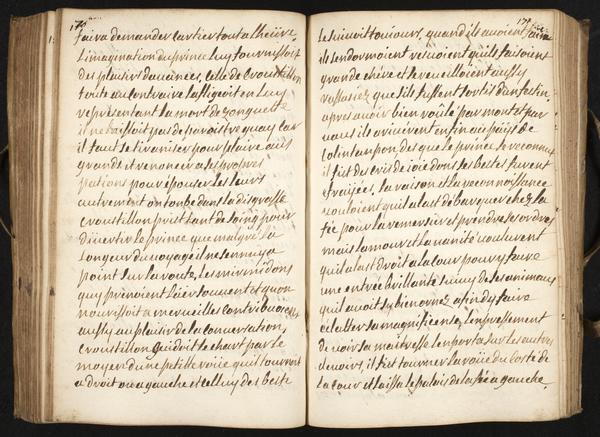 178
faira demander cartier tout a lheure,
Limagination du prince luy fournissoit
des plaisirs davances, celle de Croustillon
toute au contraire lafligeoit en luy
representant la mort de zonquette
il ne laissoit pas de paroistre guay car
il faut se tiraniser pour plaire aux
grands et renoncer a ses propres
pations pour épouser les leurs
autrement on tonbe dans la disgrasse
croustillon prist tant de soing pour
divertir le prince que malgré la
longeur du voyage il ne sennuya
point sur la route, les mirmidons
quy prenoient lair souvent et quon
nourissoit a merveilles contribuoient
aussy au plaisir de la conversation,
croustillon guidoit le chart par le
moyen dune petite roüe quil tournoit
a droit ou a gauche et celluy des beste
179
le suivoit toujours, quand ils avoient faim
ils sendormoient resvoient quils faisoient
grande chere et se reveilloient aussy
rassasiez que sils fussent sortis dun festin,
apres avoir bien roülé par mont et par
vaus ils ariverent enfin au païs de
colintanpon, des que le prince le reconnut
il fist des cris de joie dont ses bestes furent
efraiées, la raison et la reconnoissance
vouloient quil alast débarquer chez la
fée pour la remersier et prendre ses ordres
mais lamour et la vanité voulurent
quil alast droit a la cour pour y faire
une entrée brillante suivy de ses animaux
quil avoit sy bien ornez afin dy faire
éclatter sa magnificense, lenpressement
de voir sa maitresse lenporta sur les autres
devoirs, il fist tourner la roüe du coste de
la cour et laissa le palais de la fée a gauche,